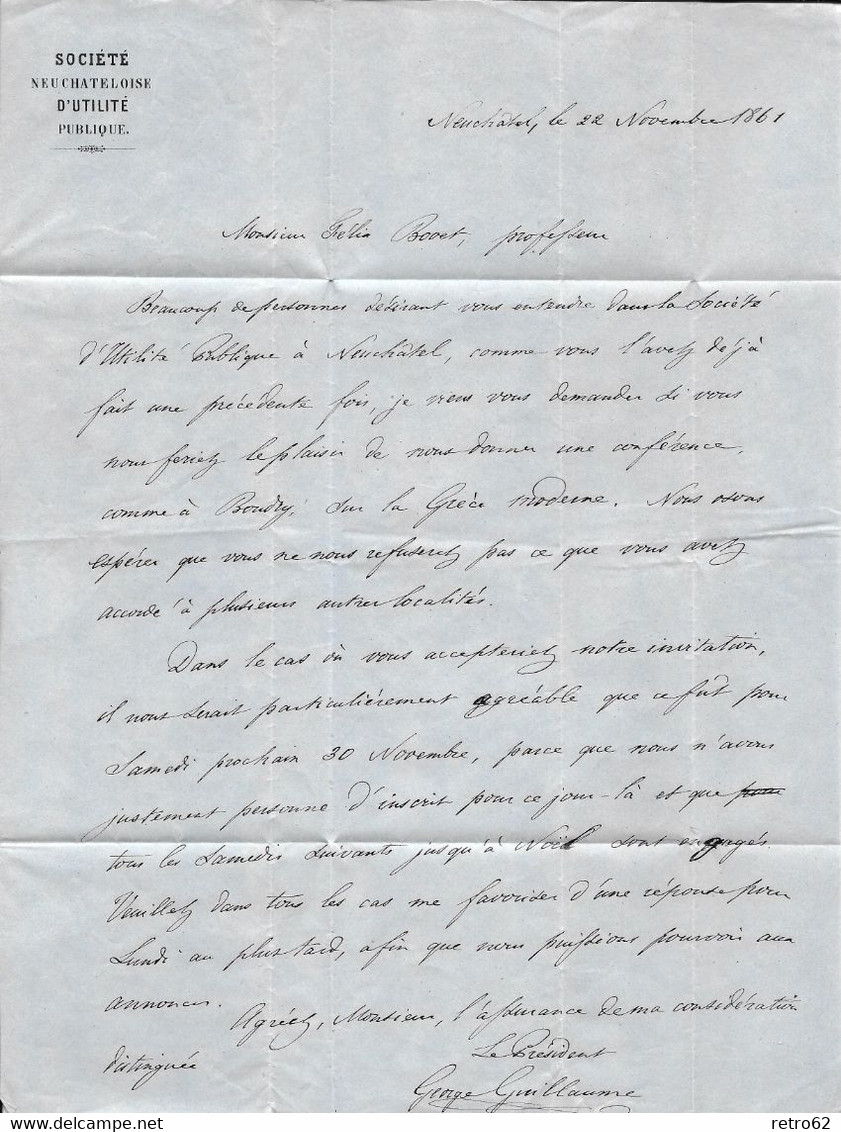 SOCIÉTÉ
NEUCHATELOISE
D'UTILITÉ
PUBLIQUE.
Neuchâtel, le 22 Novembre 1861
Monsieur Félix Bovet, professeur
Beaucoup de personnes désirant vous entendre dans la Société
d'Utilité Publique à Neuchâtel, comme vous l'avez déjà
fait une précédente fois, je viens vous demander si vous
nous feriez le plaisir de nous donner une conférence,
comme à Boudry, sur la Grèce moderne. Nous osons
espérer que vous ne nous refuserez pas ce que vous avez
accordé à plusieurs autres localités.
Dans le cas où vous accepteriez notre invitation,
il nous serait particulièrement agréable que ce fût pour
Samedi prochain 30 Novembre, parce que nous n'avons
justement personne d'inscrit pour ce jour-là et que pour
tous les Samedis suivants jusqu'à Noël sont engagés.
Veuillez dans tous les cas me favoriser d'une réponse pour
Lundi au plus tard, afin que nous puissions pourvoir aux
annonces.
Agréez, Monsieur, l'assurance de ma considération
distinguée
Le Président
George Guillaume
delcampe.net
retro62